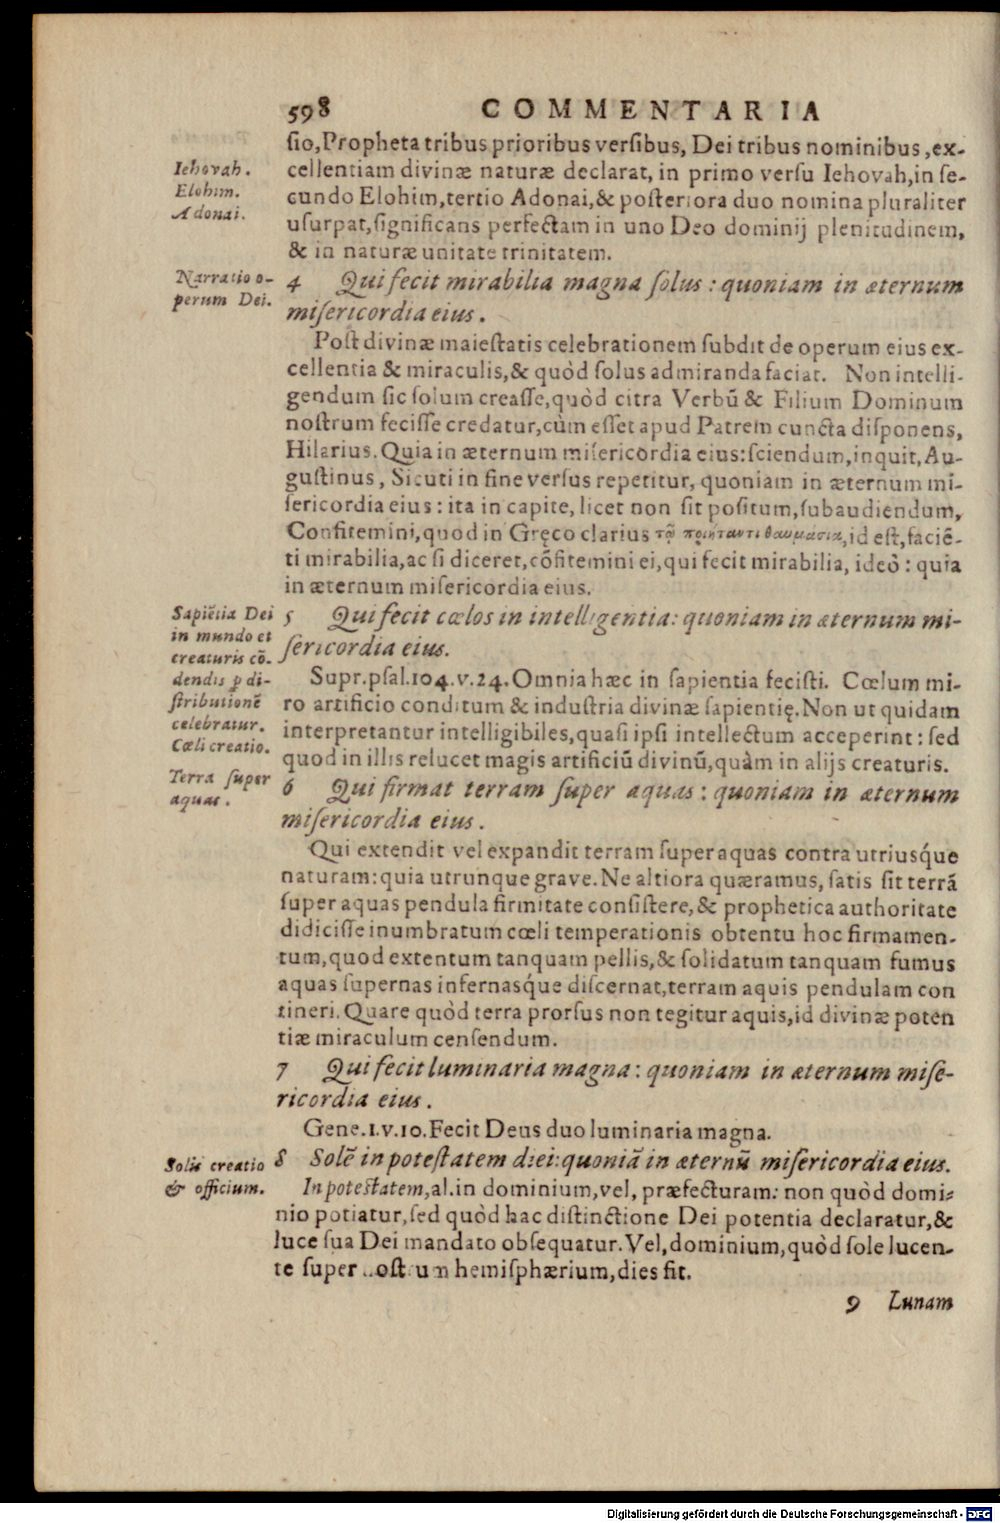 598 COMMENTARIA
sio, Propheta tribus prioribus versibus, Dei tribus nominibus, ex-
Iehovah.
cellentiam divinæ naturæ declarat, in primo versu Iehovah, in se-
Elohim.
cundo Elohim, tertio Adonai, & posteriora duo nomina pluraliter
Adonai.
usurpat, significans perfectam in uno Deo dominij plenitudinem,
& in naturæ unitate trinitatem.
Narratio o-
perum Dei.
4 Qui fecit mirabilia magna solus: quoniam in æternum
misericordia eius.
Post divinæ maiestatis celebrationem subdit de operum eius ex-
cellentia & miraculis, & quòd solus admiranda faciat. Non intelli-
gendum sic solum creasse, quòd citra Verbũ & Filium Dominum
nostrum fecisse credatur, cùm esset apud Patrem cuncta disponens,
Hilarius. Quia in æternum misericordia eius: sciendum, inquit, Au-
gustinus, Sicuti in fine versus repetitur, quoniam in æternum mi-
sericordia eius: ita in capite, licet non sit positum, subaudiendum,
Confitemini, quod in Gręco clarius τῷ ποιήσαντι θαυμάσια, id est, faciẽ-
ti mirabilia, ac si diceret, cõfitemini ei, qui fecit mirabilia, ideò: quia
in æternum misericordia eius.
Sapiẽtia Dei
in mundo et
creaturis cõ-
dendis ꝑ di-
stributionẽ
celebratur.
Cæli creatio.
5 Qui fecit cœlos in intelligentia: quoniam in æternum mi-
sericordia eius.
Supr. psal. 104. v. 24. Omnia hæc in sapientia fecisti. Cœlum mi-
ro artificio conditum & industria divinæ sapientię. Non ut quidam
interpretantur intelligibiles, quasi ipsi intellectum acceperint: sed
quod in illis relucet magis artificiũ divinũ, quàm in alijs creaturis.
Terra super
aquas.
6 Qui firmat terram super aquas: quoniam in æternum
misericordia eius.
Qui extendit vel expandit terram super aquas contra utriusq́ue
naturam: quia utrunque grave. Ne altiora quæramus, satis sit terrã
super aquas pendula firmitate consistere, & prophetica authoritate
didicisse inumbratum cœli temperationis obtentu hoc firmamen-
tum, quod extentum tanquam pellis, & solidatum tanquam fumus
aquas supernas infernasq́ue discernat, terram aquis pendulam con
tineri. Quare quòd terra prorsus non tegitur aquis, id divinæ poten
tiæ miraculum censendum.
7 Qui fecit luminaria magna: quoniam in æternum mise-
ricordia eius.
Gene. 1. v. 10. Fecit Deus duo luminaria magna.
Solis creatio
& officium.
8 Solẽ in potestatem diei: quoniã in æternũ misericordia eius.
In potestatem, al. in dominium, vel, præfecturam: non quòd domi-
nio potiatur, sed quòd hac distinctione Dei potentia declaratur, &
luce sua Dei mandato obsequatur. Vel, dominium, quòd sole lucen-
te super hemisphærium, dies fit.
9 Lunam
Digitalisierung gefördert durch die Deutsche Forschungsgemeinschaft - DFG